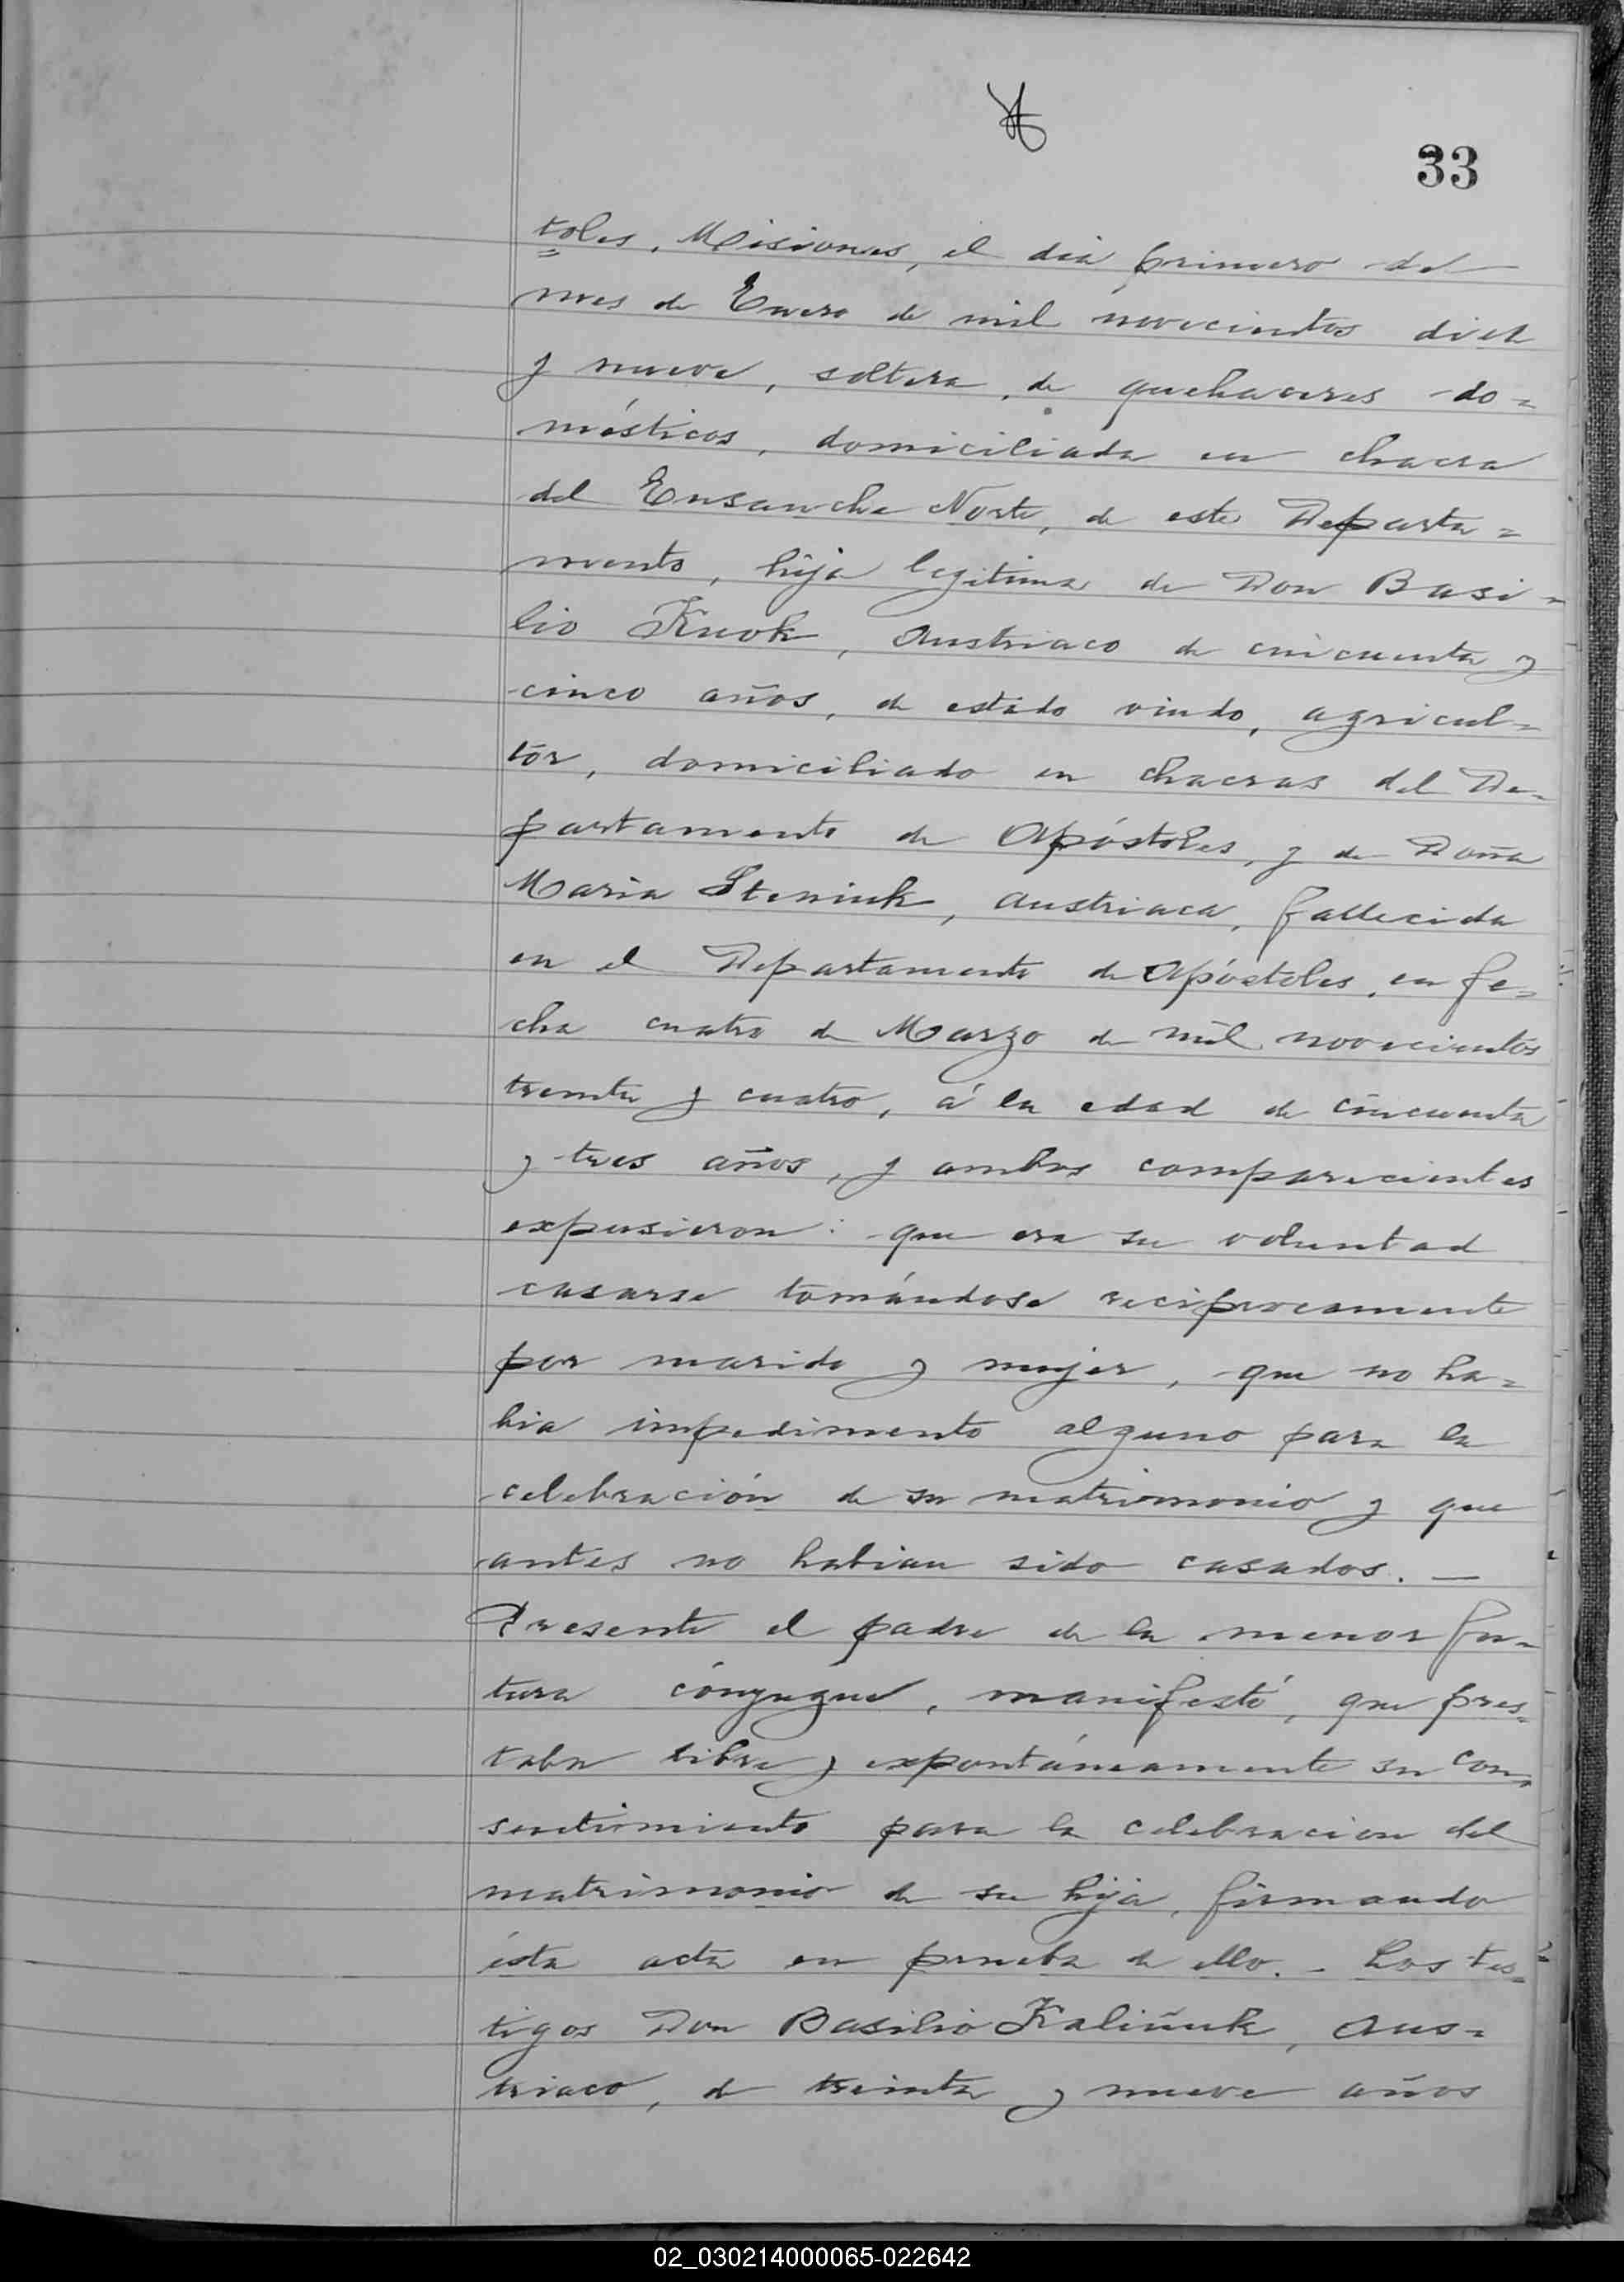 33
toles, Misiones, el dia primero del
mes de Enero de mil novecientos diez
y nueve, soltera, de quehaceres do=
mésticos, domiciliada en chacra
del Ensanche Norte, de este Departa=
mento, hija legitima de Don Basi=
lio Kuok, Austriaco de cincuenta y
cinco años, de estado viudo, agricul=
tor, domiciliado en chacras del De=
partamento de Apóstoles, y de Doña
Maria Steniuk, austriaca, fallecida
en el Departamento de Apóstoles, en fe=
cha cuatro de Marzo de mil novecientos
treinta y cuatro, á la edad de cincuenta
y tres años, y ambos comparecientes
expusieron: que era su voluntad
casarse tomándose reciprocamente
por marido y mujer, que no ha=
bia impedimento alguno para la
celebración de su matrimonio y que
antes no habian sido casados. —
Presente el padre de la menor fu=
tura cónyugue, manifestó, que pres=
taba libre y expontáneamente su con=
sentimiento para la celebracion del
matrimonio de su hija, firmando
ésta acta en prueba de ello. - Los tes=
tigos Don Basilio Kaliñuk, Aus=
triaco, de treinta y nueve años
02_030214000065-022642